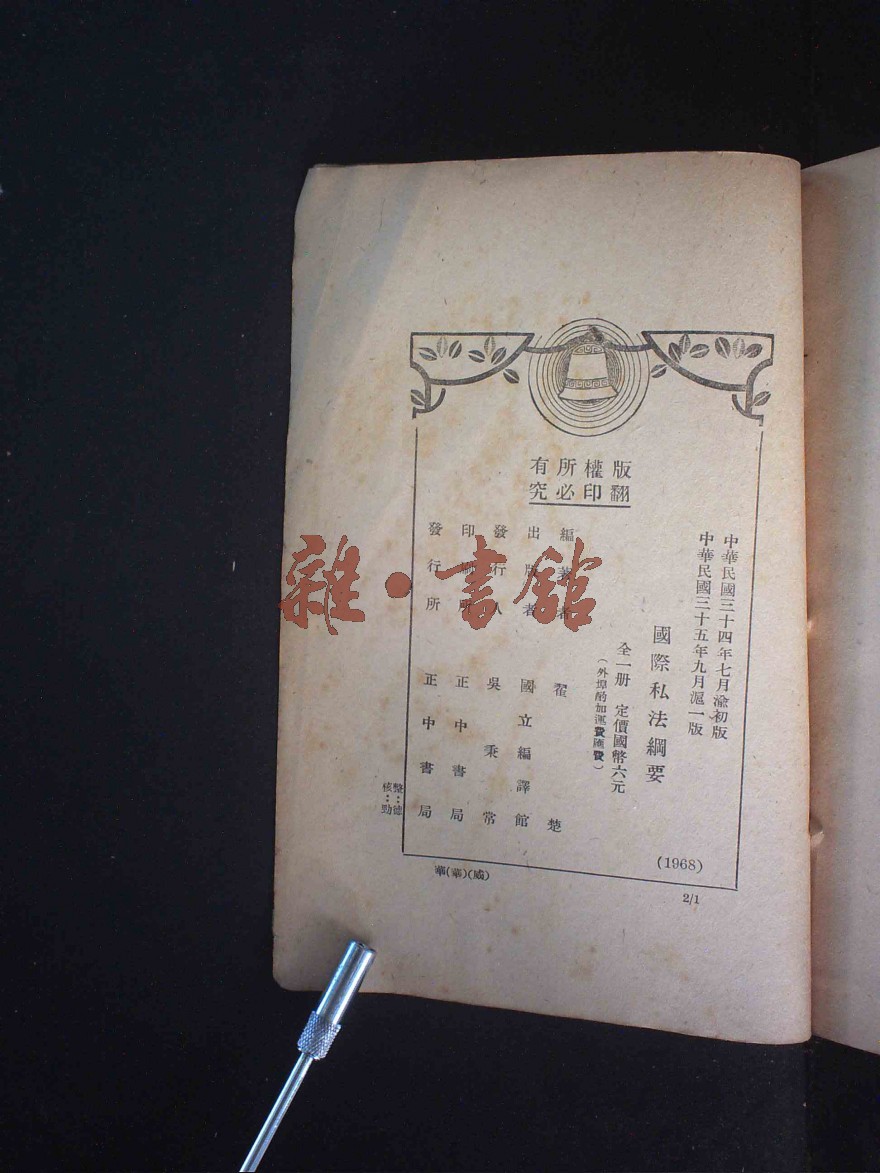 版權所有
翻印必究
中華民國三十四年七月渝初版
中華民國三十五年九月滬一版
國際私法綱要
全一册　定價國幣六元
（外埠酌加運費匯費）
編著者　翟楚
出版者　國立編譯館
發行人　吳秉常
印刷所　正中書局
發行所　正中書局
(1968)
整：德
核：勁
華(華)(威)
2/1
雜·書館